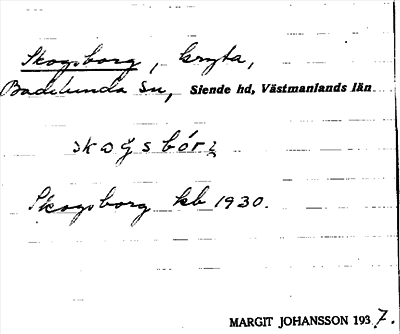 Skogsborg, Gryta,
Badelunda sn, Siende hd, Västmanlands län
Skogsborg kb 1930.
MARGIT JOHANSSON 1937.